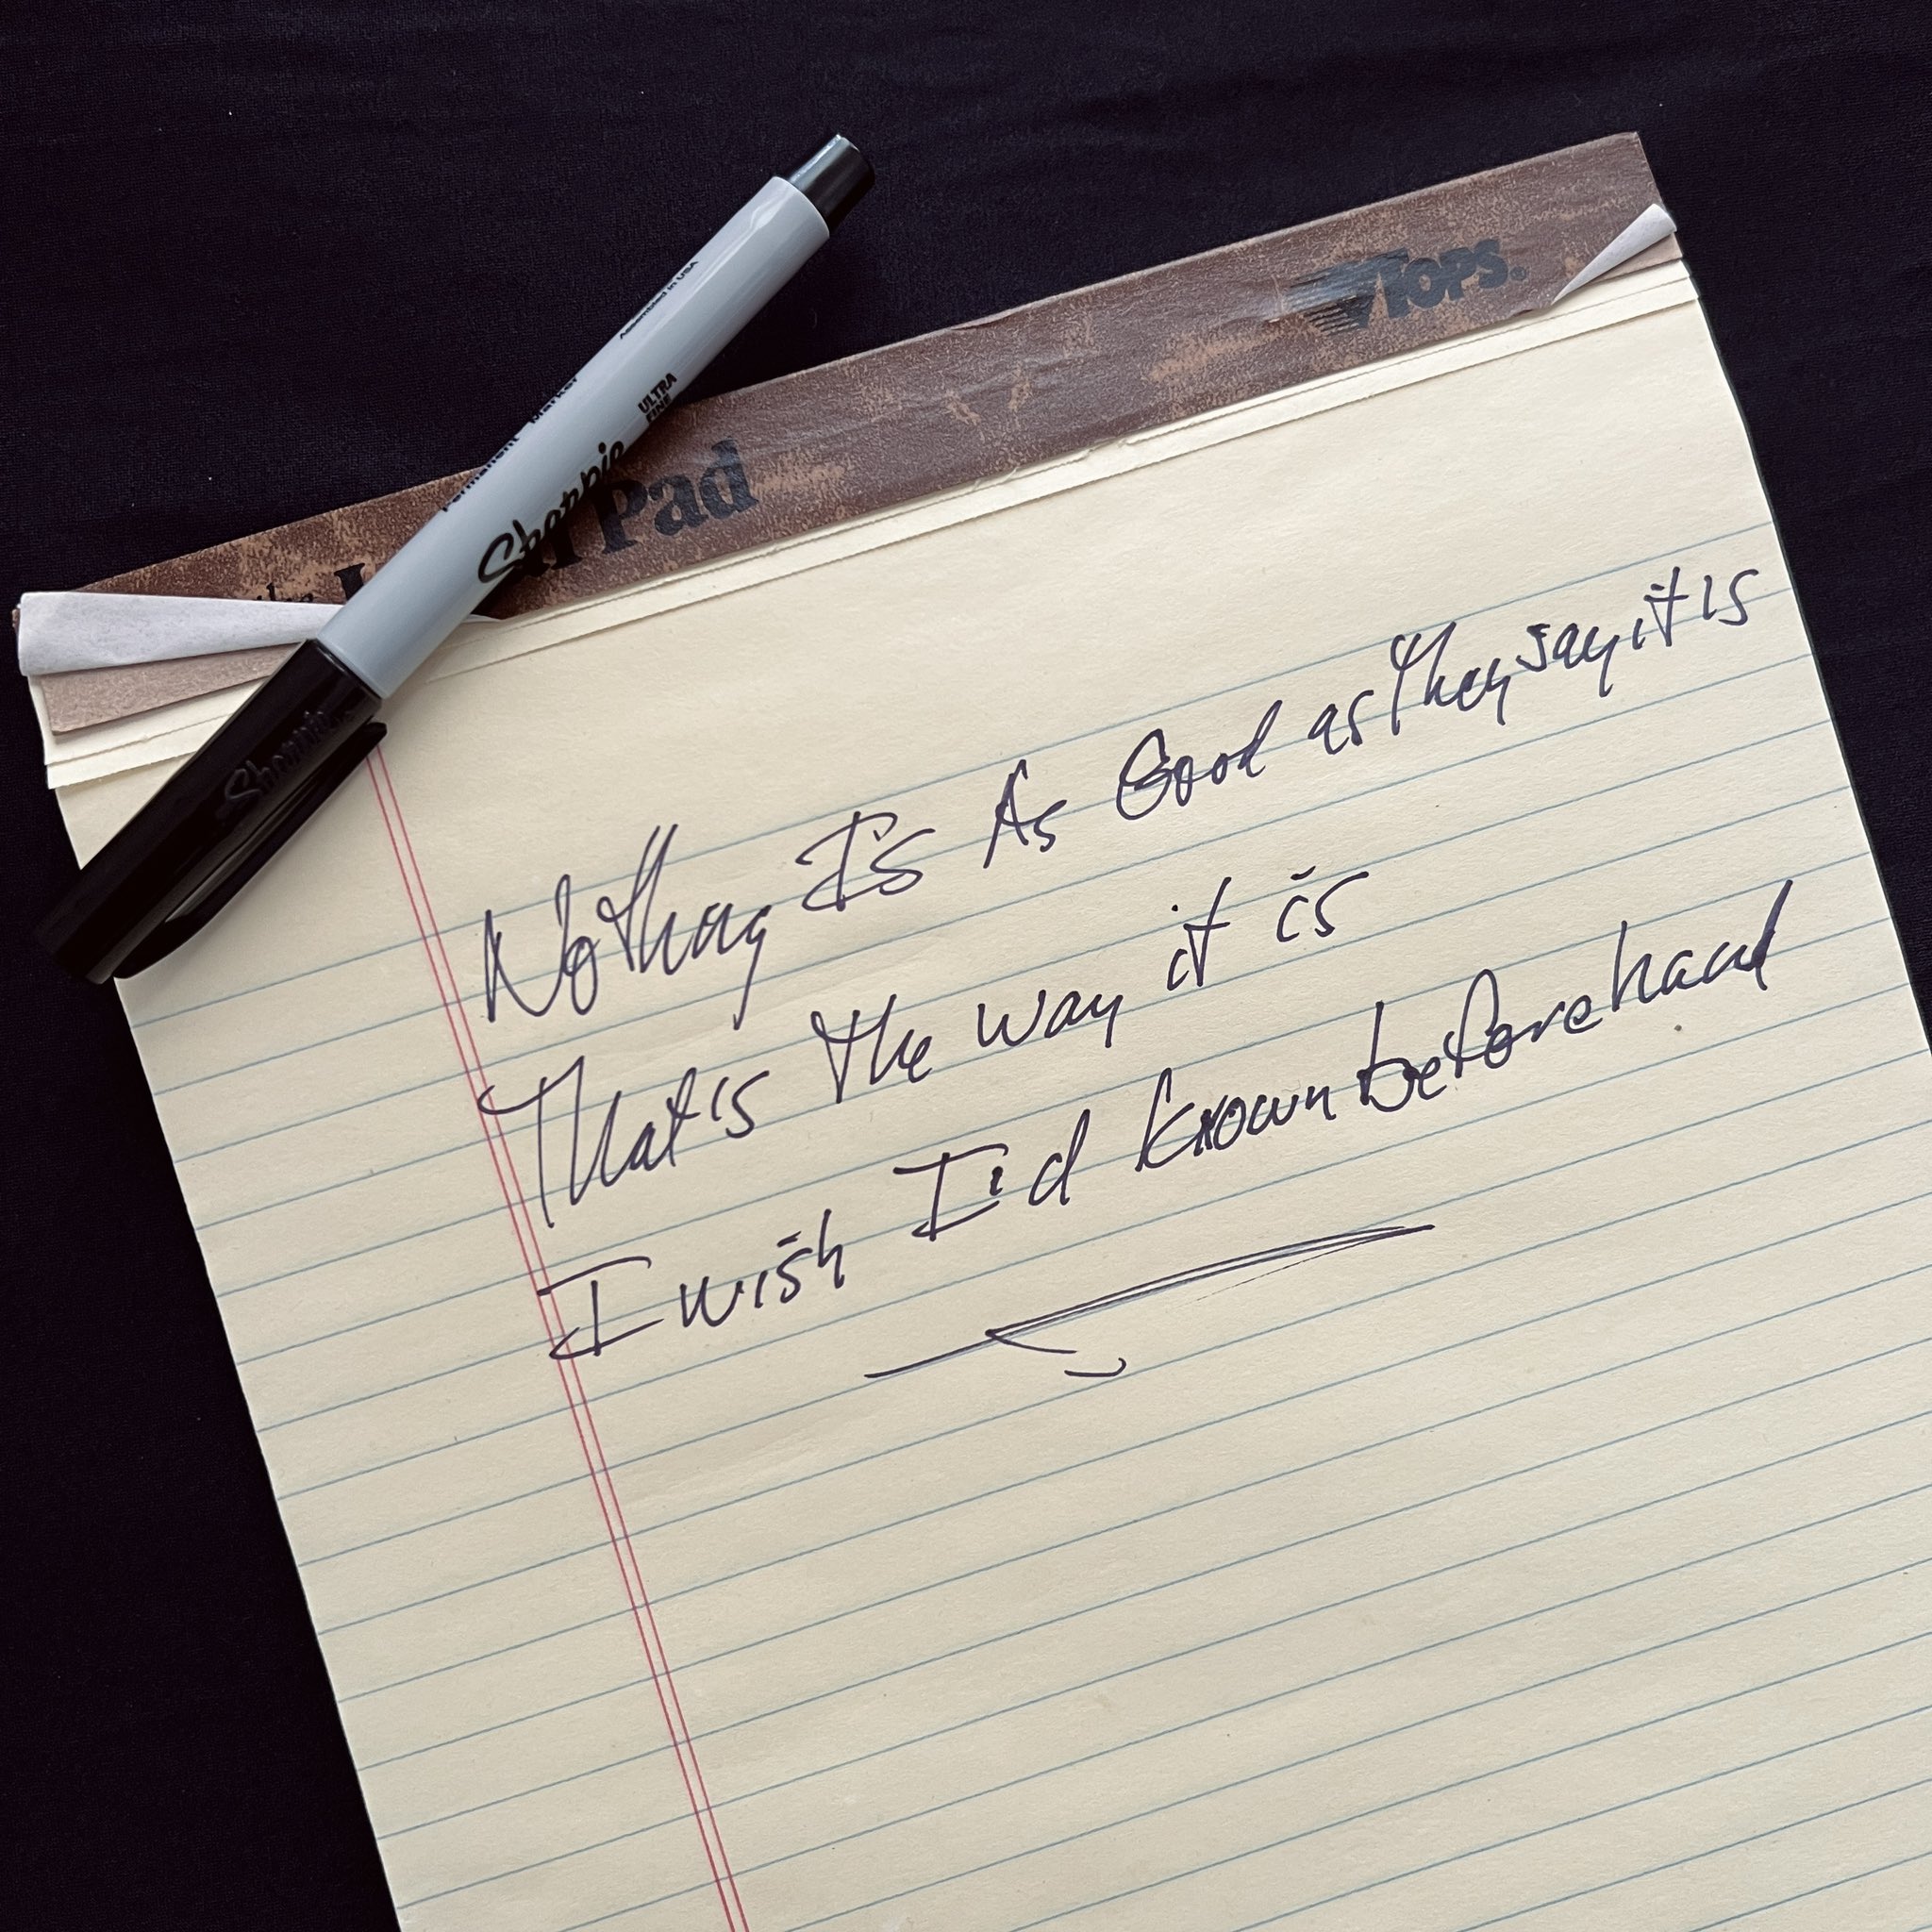 Assembled in USA
Permanent Marker
ULTRA
FINE
Sharpie
Sharpie
TOPS®
Pad
Nothing Is As Good as they say it is
That is the way it is
I wish I'd known beforehand